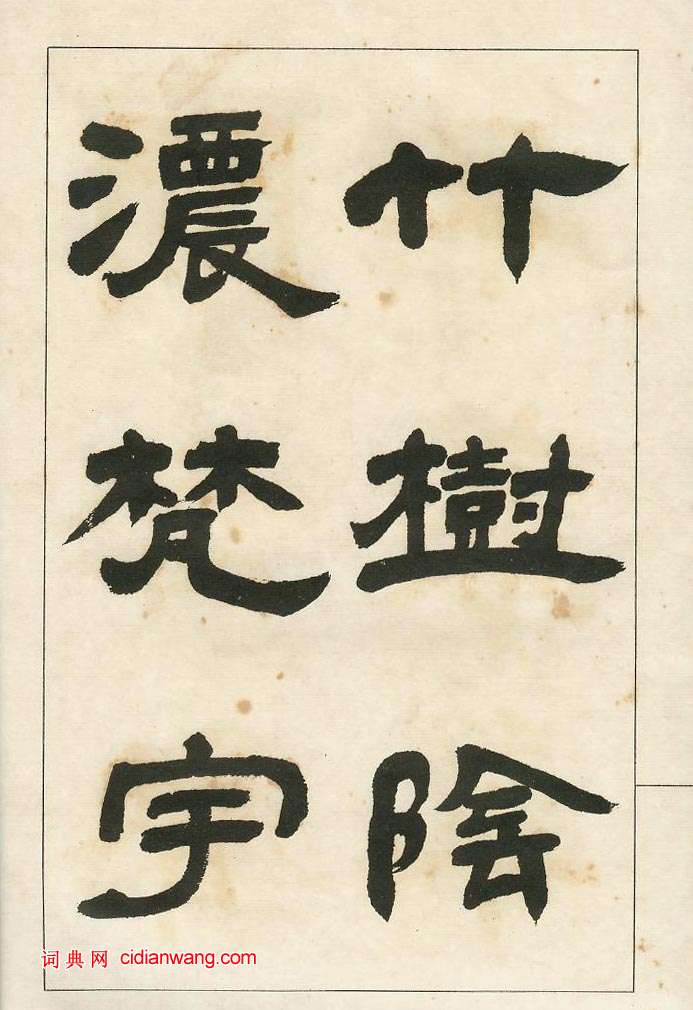 竹樹陰
濃梵宇
词典网 cidianwang.com